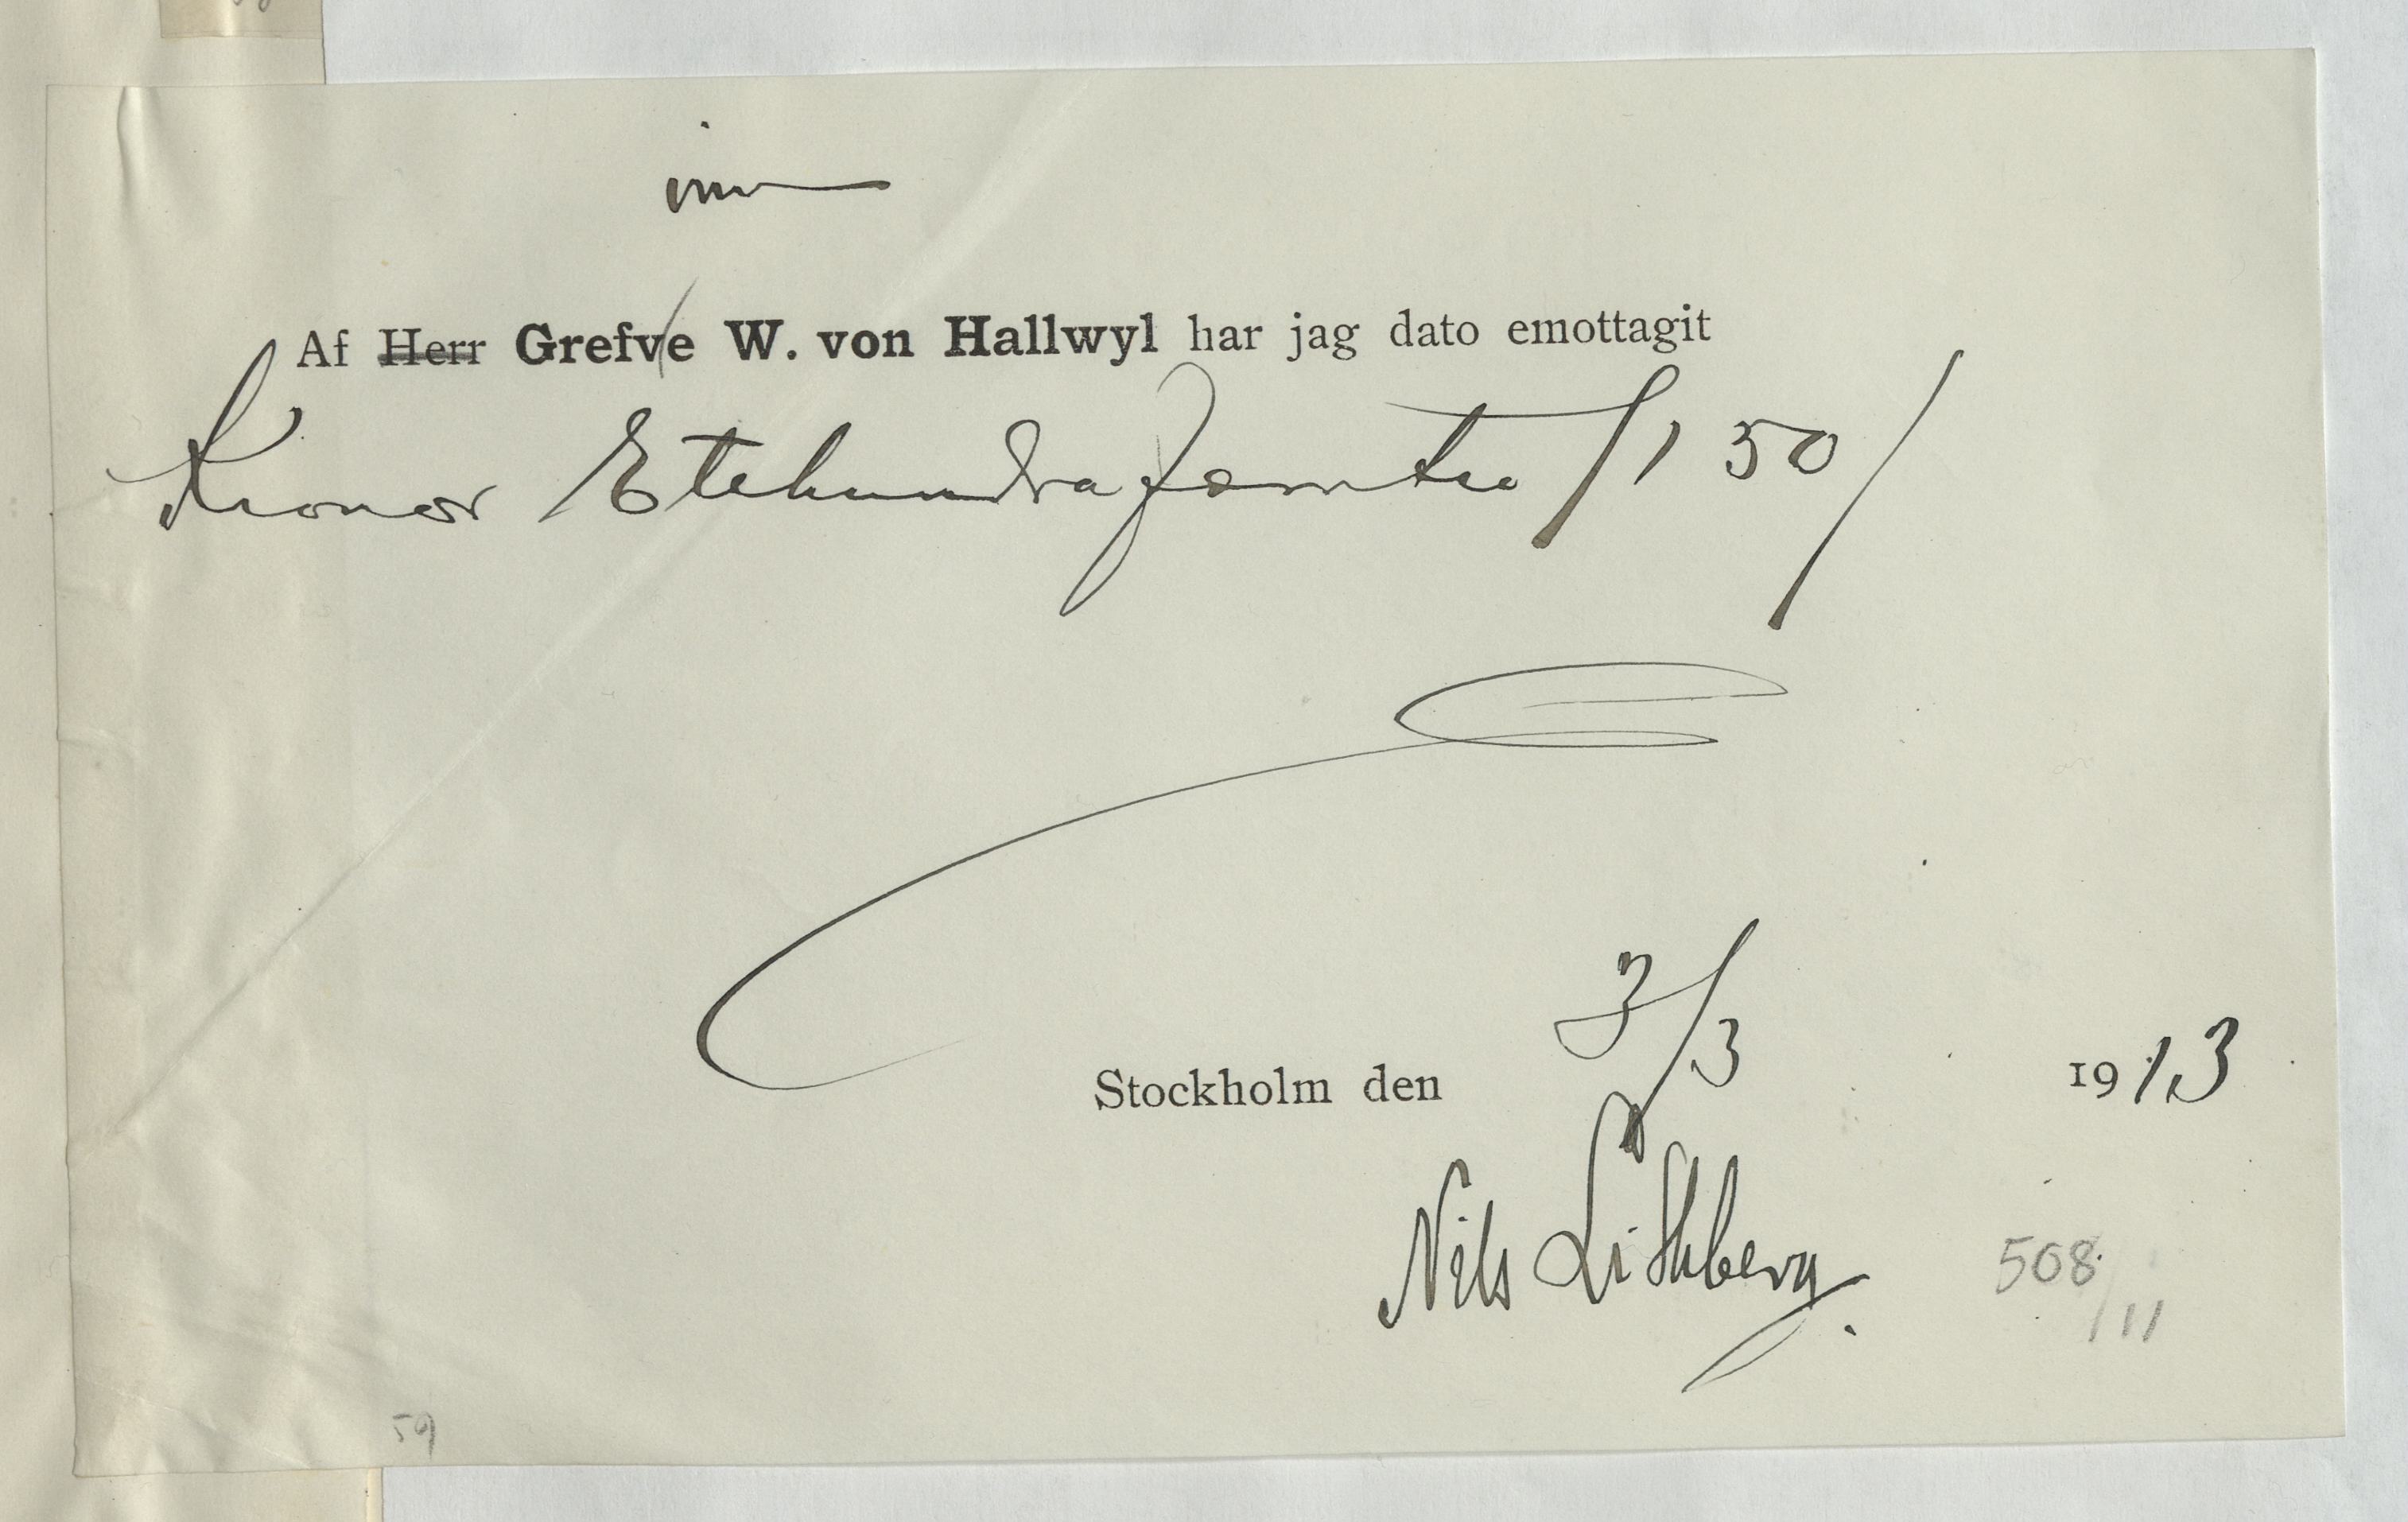 inn
Af Herr Grefve W. von Hallwyl har jag dato emottagit
Kronor Etthundrafemtio /150/
Stockholm den 3/3 1913
Nils Lithberg.
508/11
59